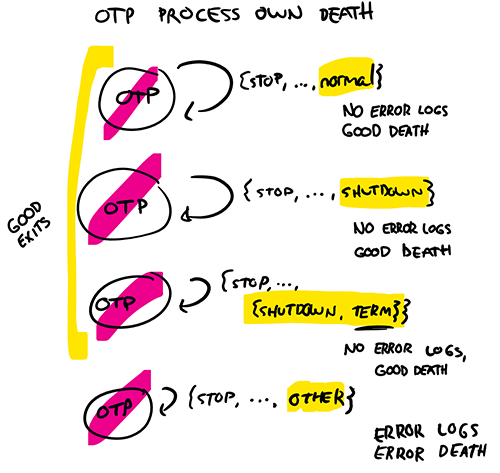 OTP PROCESS OWN DEATH
OTP
{STOP, ..., normal}
NO ERROR LOGS
GOOD DEATH
OTP
{STOP, ..., SHUTDOWN}
NO ERROR LOGS
GOOD DEATH
GOOD
EXITS
OTP
{STOP, ...,
{SHUTDOWN, TERM}}
NO ERROR LOGS,
GOOD DEATH
OTP
{STOP, ..., OTHER}
ERROR LOGS
ERROR DEATH